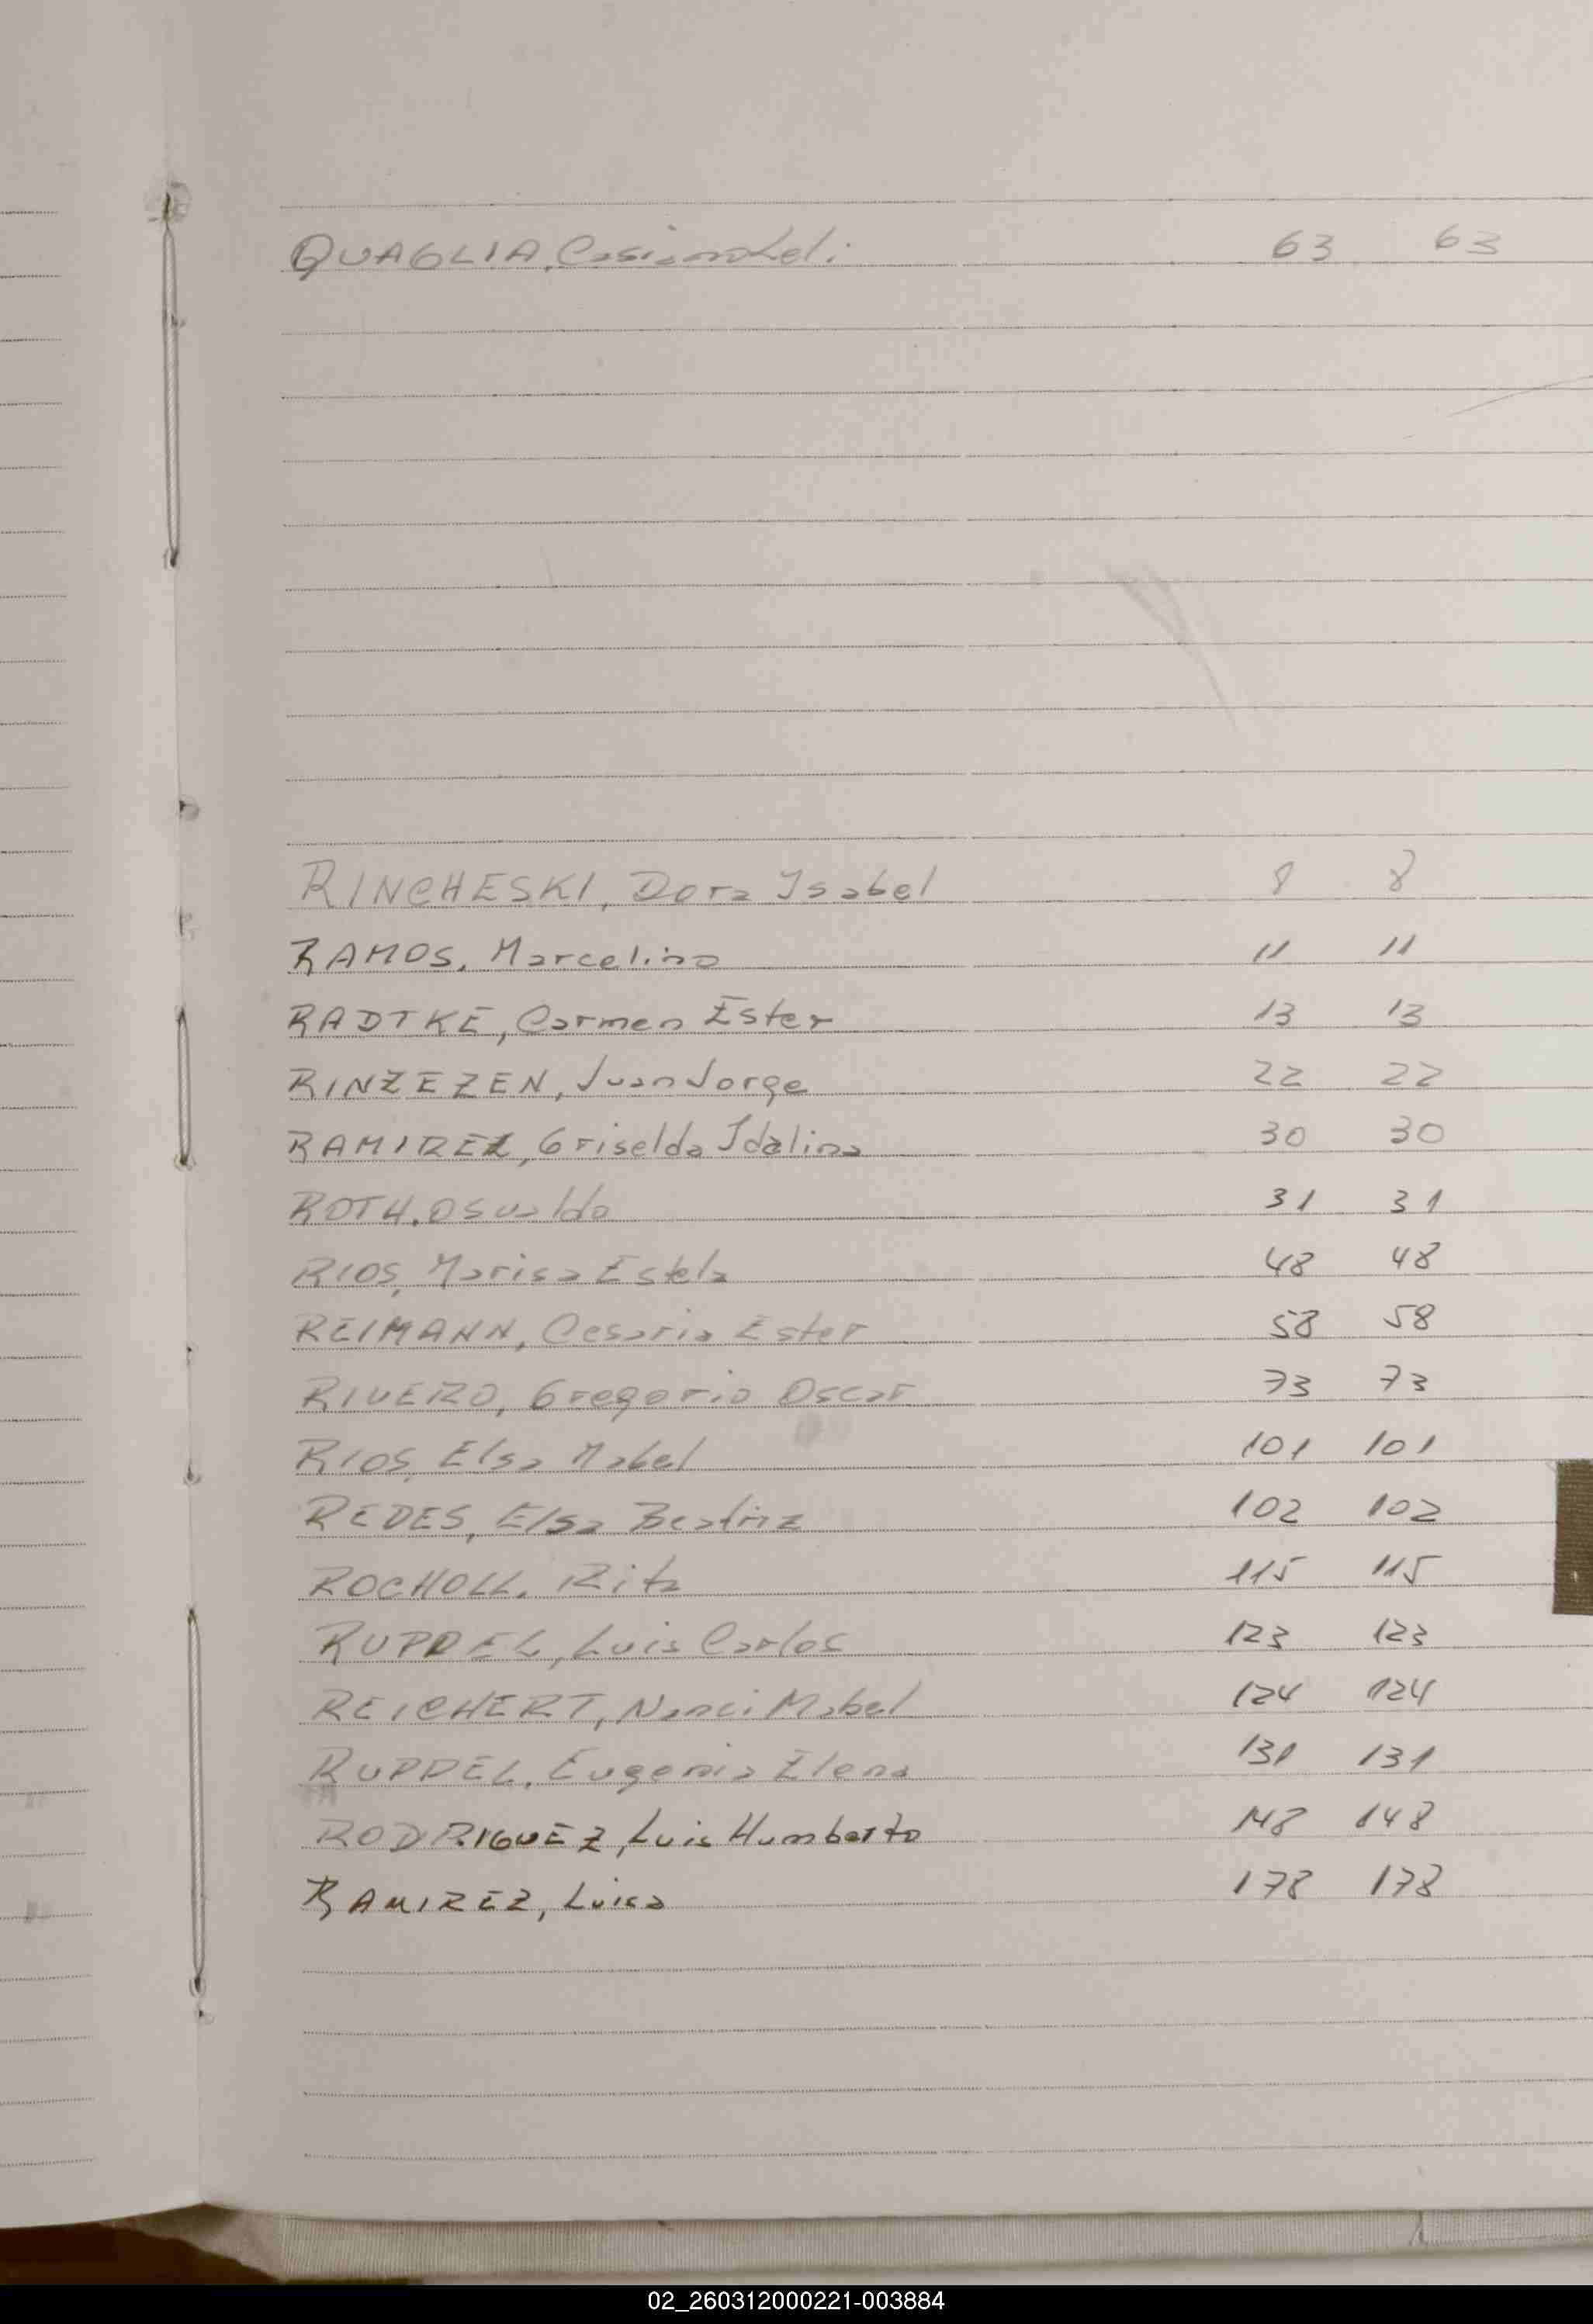 QUAGLIA, 63 63
RINCHESKI, Dora Isabel 8 8
RAMOS, Marcelino 11 11
RADTKE, Carmen Ester 13 13
RINZEZEN, Juan Jorge 22 22
RAMIREZ, Griselda Idalina 30 30
ROTH, Osvaldo 31 31
RIOS, Marisa Estela 48 48
REIMANN, Cesaria Ester 58 58
RIVERO, Gregorio Oscar 73 73
RIOS, Elsa Mabel 101 101
REDES, Elsa Beatriz 102 102
ROCHOLL, Rita 115 115
RUPPEL, Luis Carlos 123 123
REICHERT, Nanci Mabel 124 124
RUPPEL, Eugenia Elena 131 131
RODRIGUEZ, Luis Humberto 148 148
RAMIREZ, Luisa 178 178
02_260312000221-003884